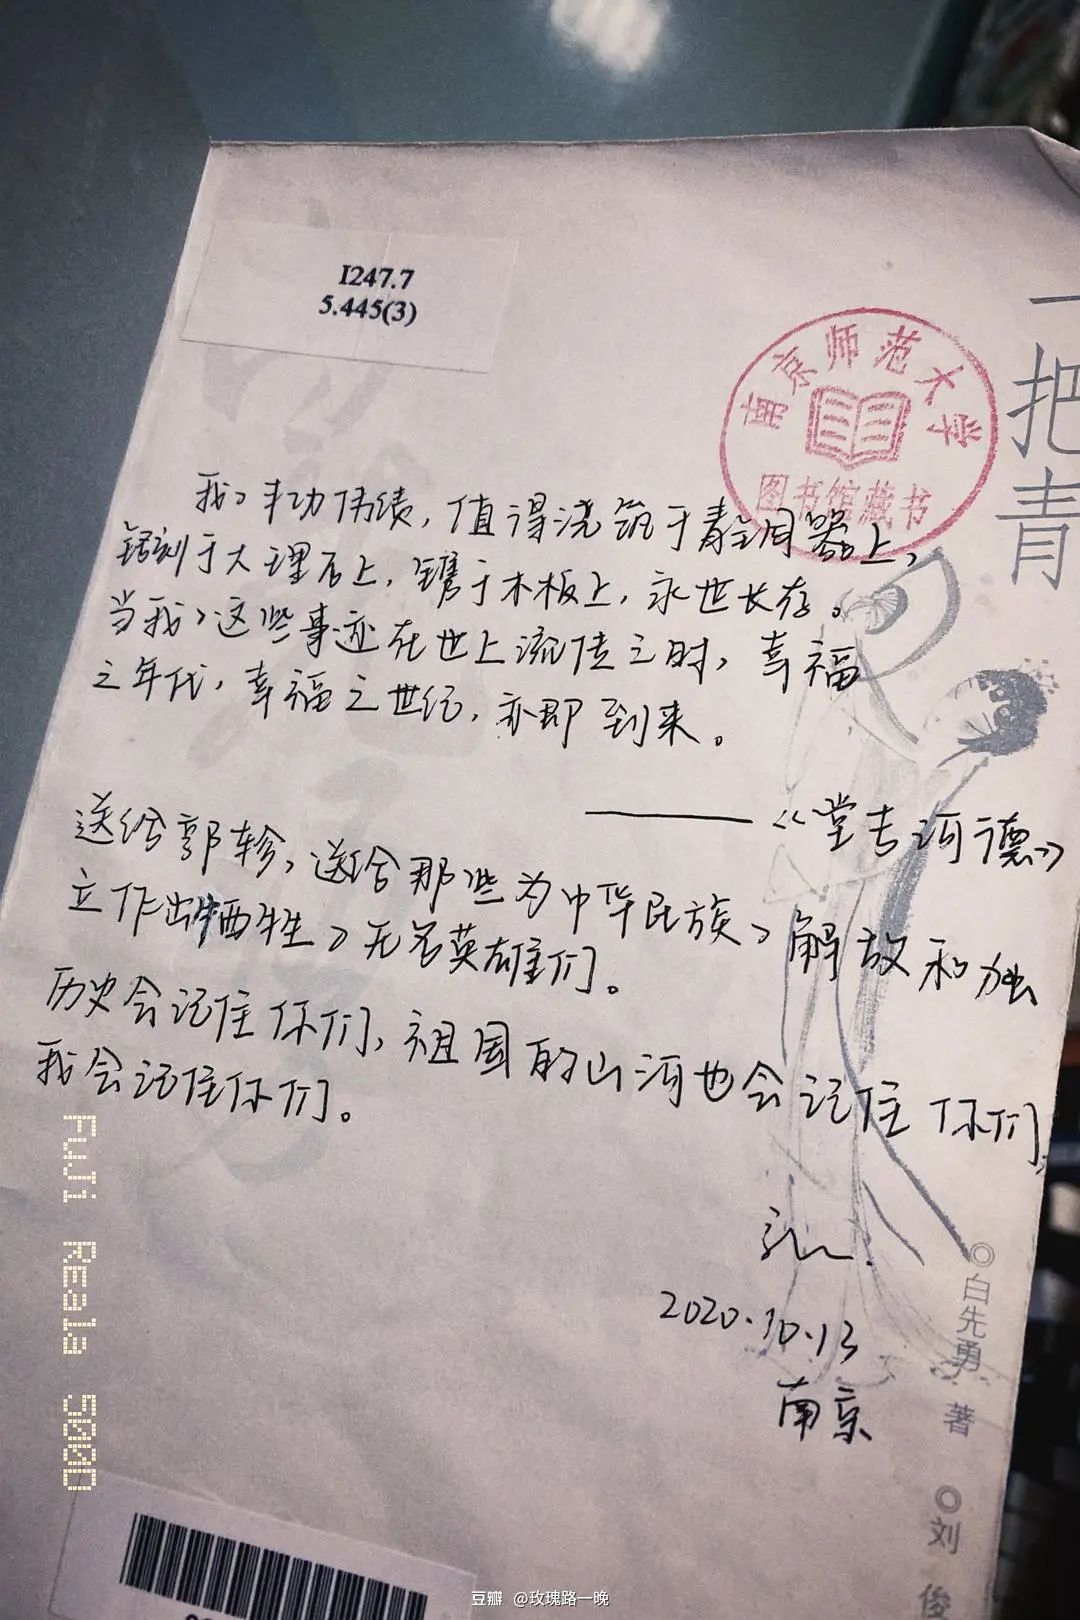 I247.7
5.445(3)
南京师范大学
图书馆藏书
一把青
我之丰功伟绩，值得浇筑于青铜器上，
铭刻于大理石上，镌于木板上，永世长存。
当我之这些事迹在世上流传之时，幸福
之年代，幸福之世纪，亦即到来。
——《堂吉诃德》
送给郭轸，送给那些为中华民族之解放和独
立作出牺牲之无名英雄们。
历史会记住你们，祖国的山河也会记住你们，
我会记住你们。
2020.10.13
南京
◎白先勇 著
◎刘俊
FUJi Reala 500D
豆瓣 @玫瑰路一晚